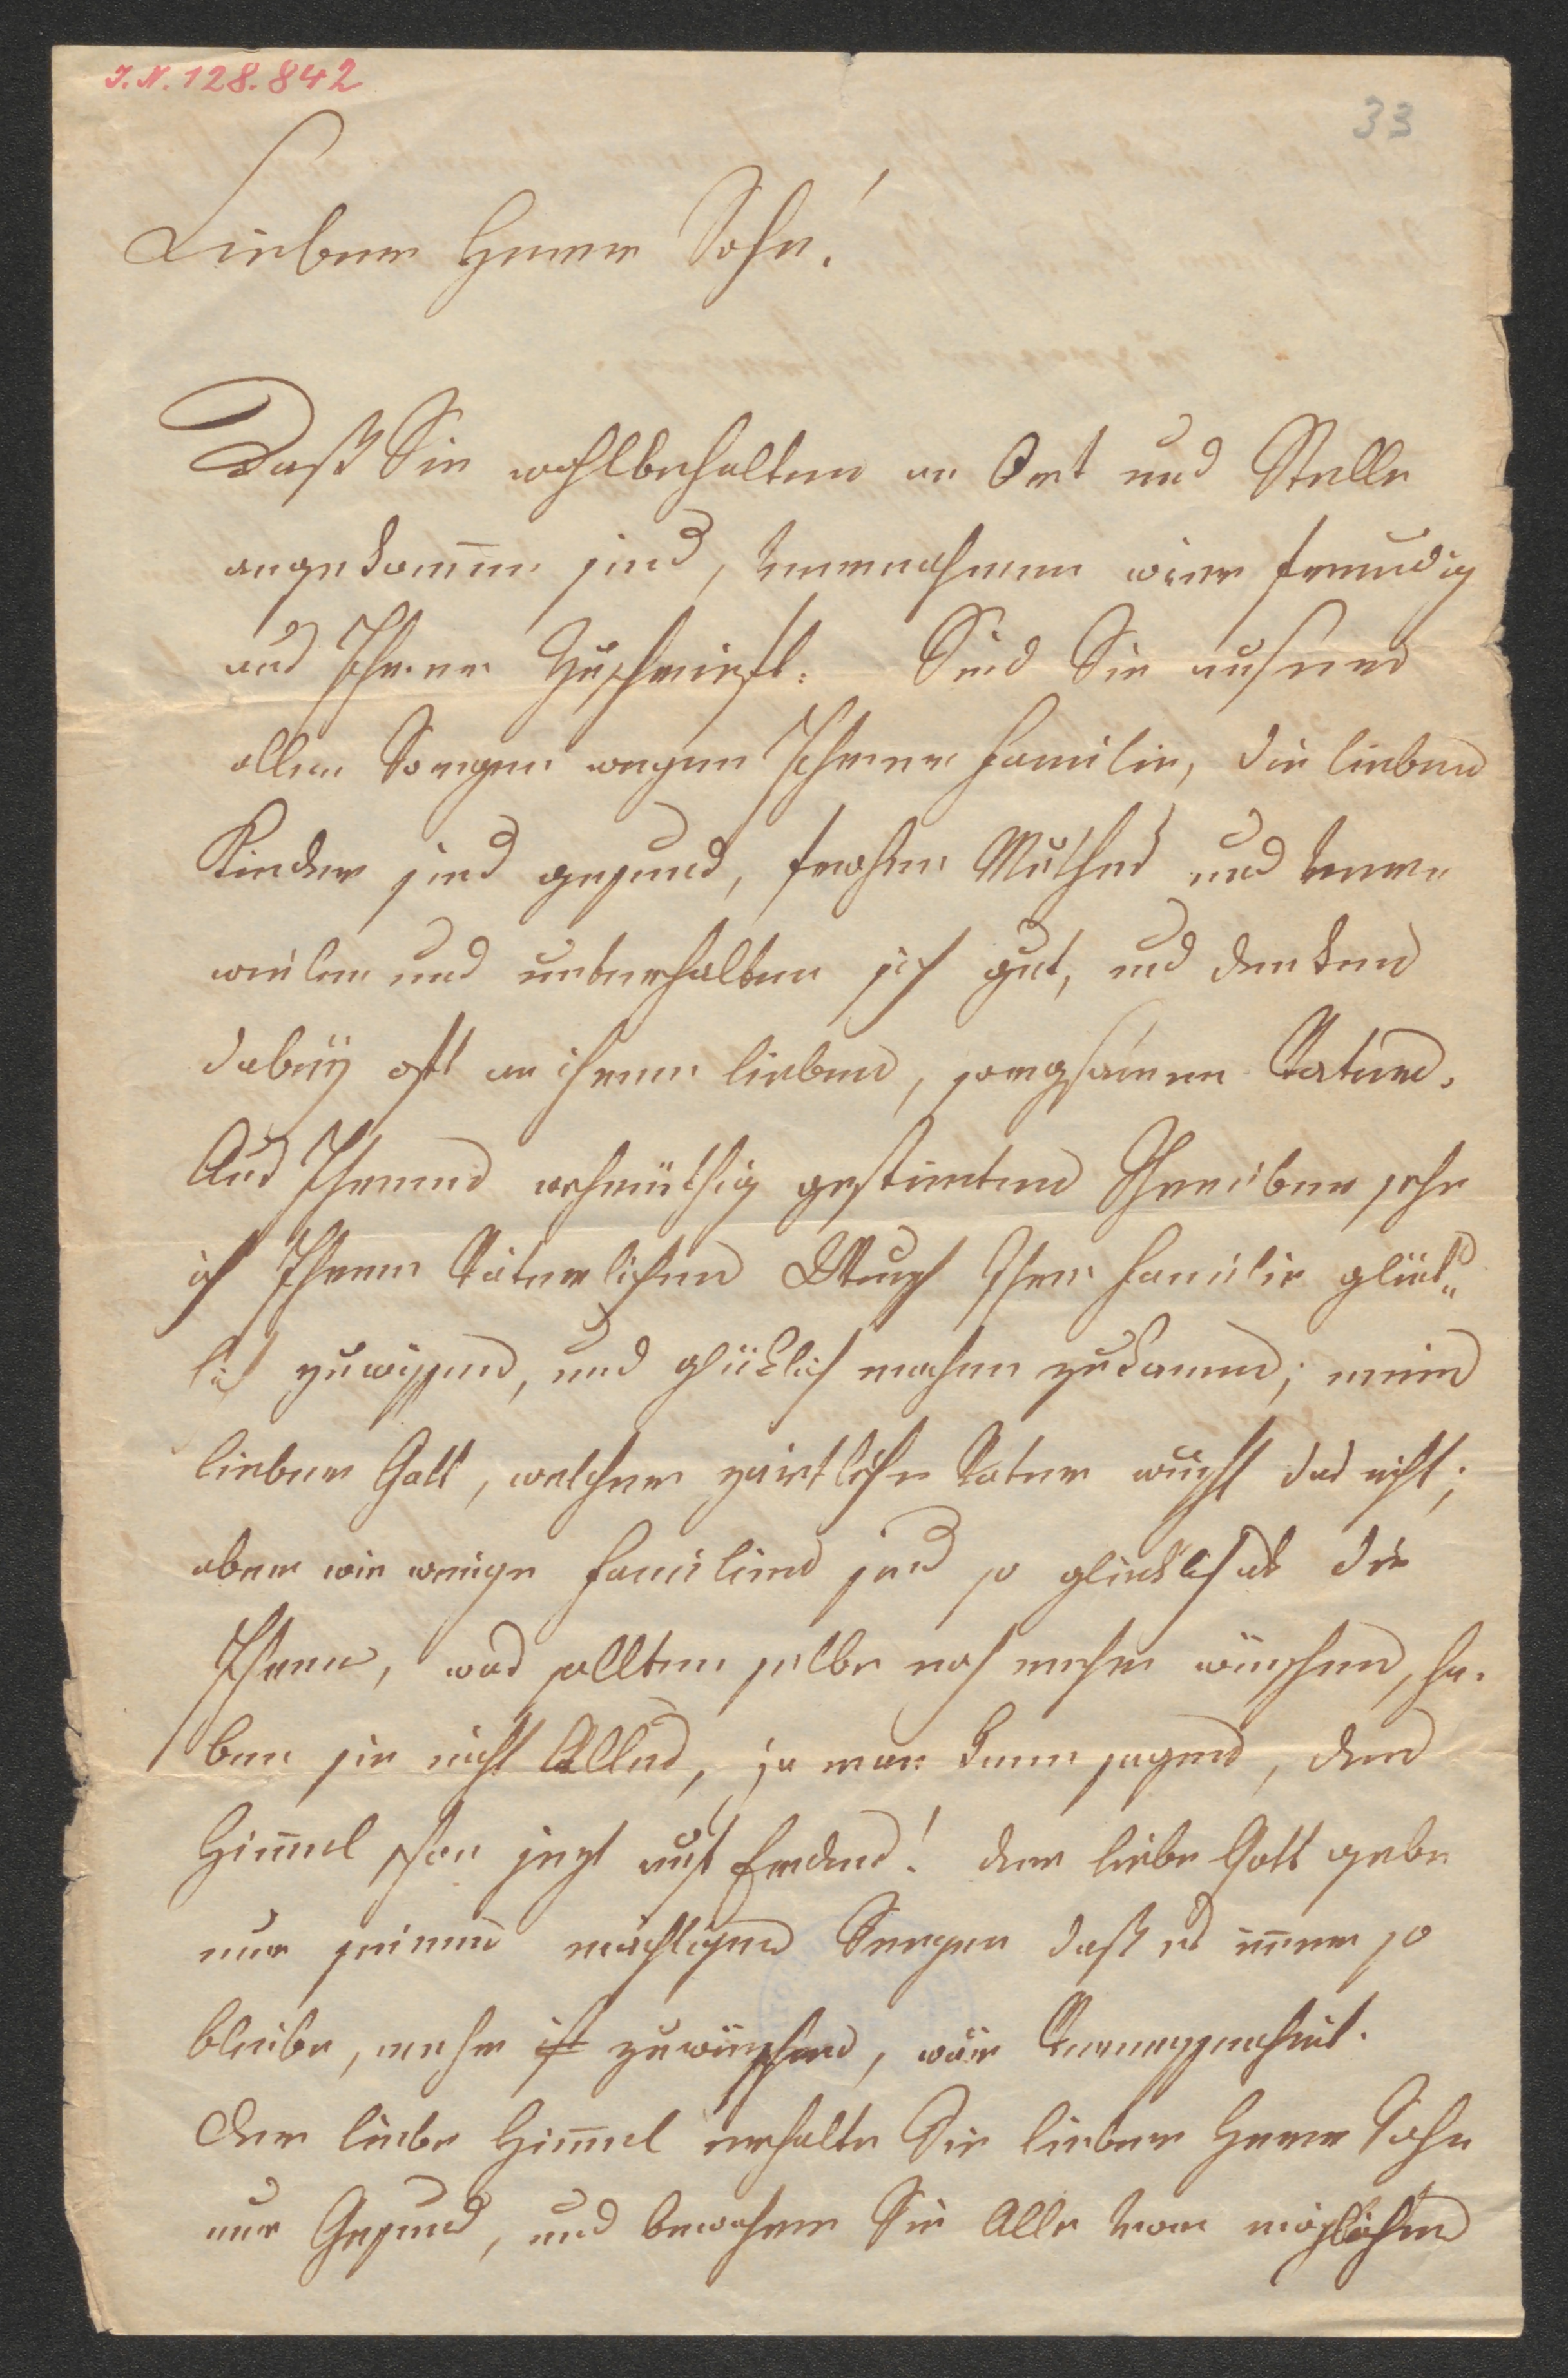 I.N. 128.842
33
Lieber Herr Sohn!
Daß Sie wohlbehalten an Ort und Stelle
angekom̅en sind, vernahmen wir freudig
aus Ihrer Zuschrift. Sind Sie außer
allen Sorgen wegen Ihrer Familie, die lieben
Kinder sind gesund, frohen Muthes und ver-
weilen und unterhalten sich gut, und denken
dabeÿ oft an ihren lieben, sorgsamen Vater.
Aus Ihrem wehmüthig gestimten Schreiben sehe
ich Ihren Väterlichen Wunsch Ihre Familie glück„
lich zuwissen, und glücklich machen zukönnen; mein
lieber Gott, welcher zärtliche Vater wünscht das nicht;
aber wie wenige Familien sind so glücklich als die
Ihren, was sollten selbe noch mehr wünschen, ha-
ben sie nicht Alles, ja man kann sagen, den
Him̅el schon jezt auf Erden! der liebe Gott gebe
nur seinen mächtigen Seegen daß es im̅er so
bleibe, mehr ist zuwünschen, wär Vermessenheit.
Der liebe Him̅el erhalte Sie lieber Herr Sohn
nur Gesund, und bewahre Sie Alle vor möglichen